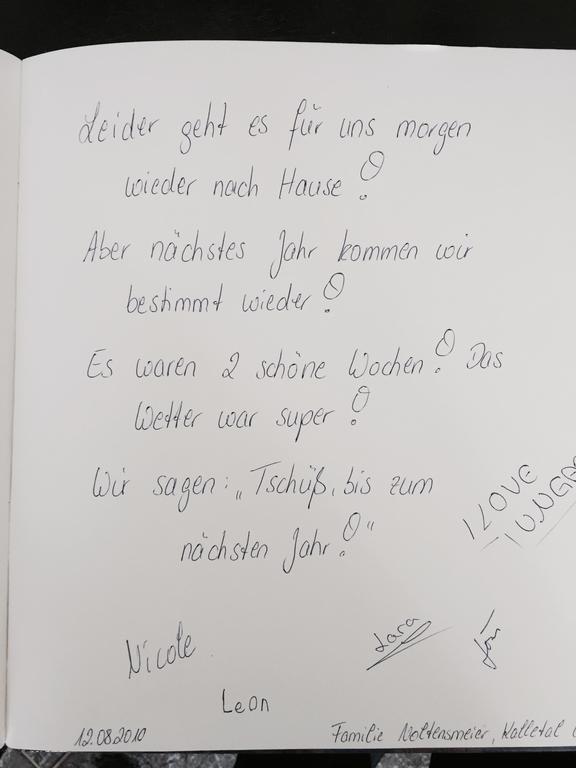 Leider geht es für uns morgen
wieder nach Hause!
Aber nächstes Jahr kommen wir
bestimmt wieder!
Es waren 2 schöne Wochen! Das
Wetter war super!
Wir sagen: „Tschüß, bis zum
nächsten Jahr!“
I LOVE
Nicole
Lara
Leon
12.08.2010
Familie Noltensmeier, Kalletal